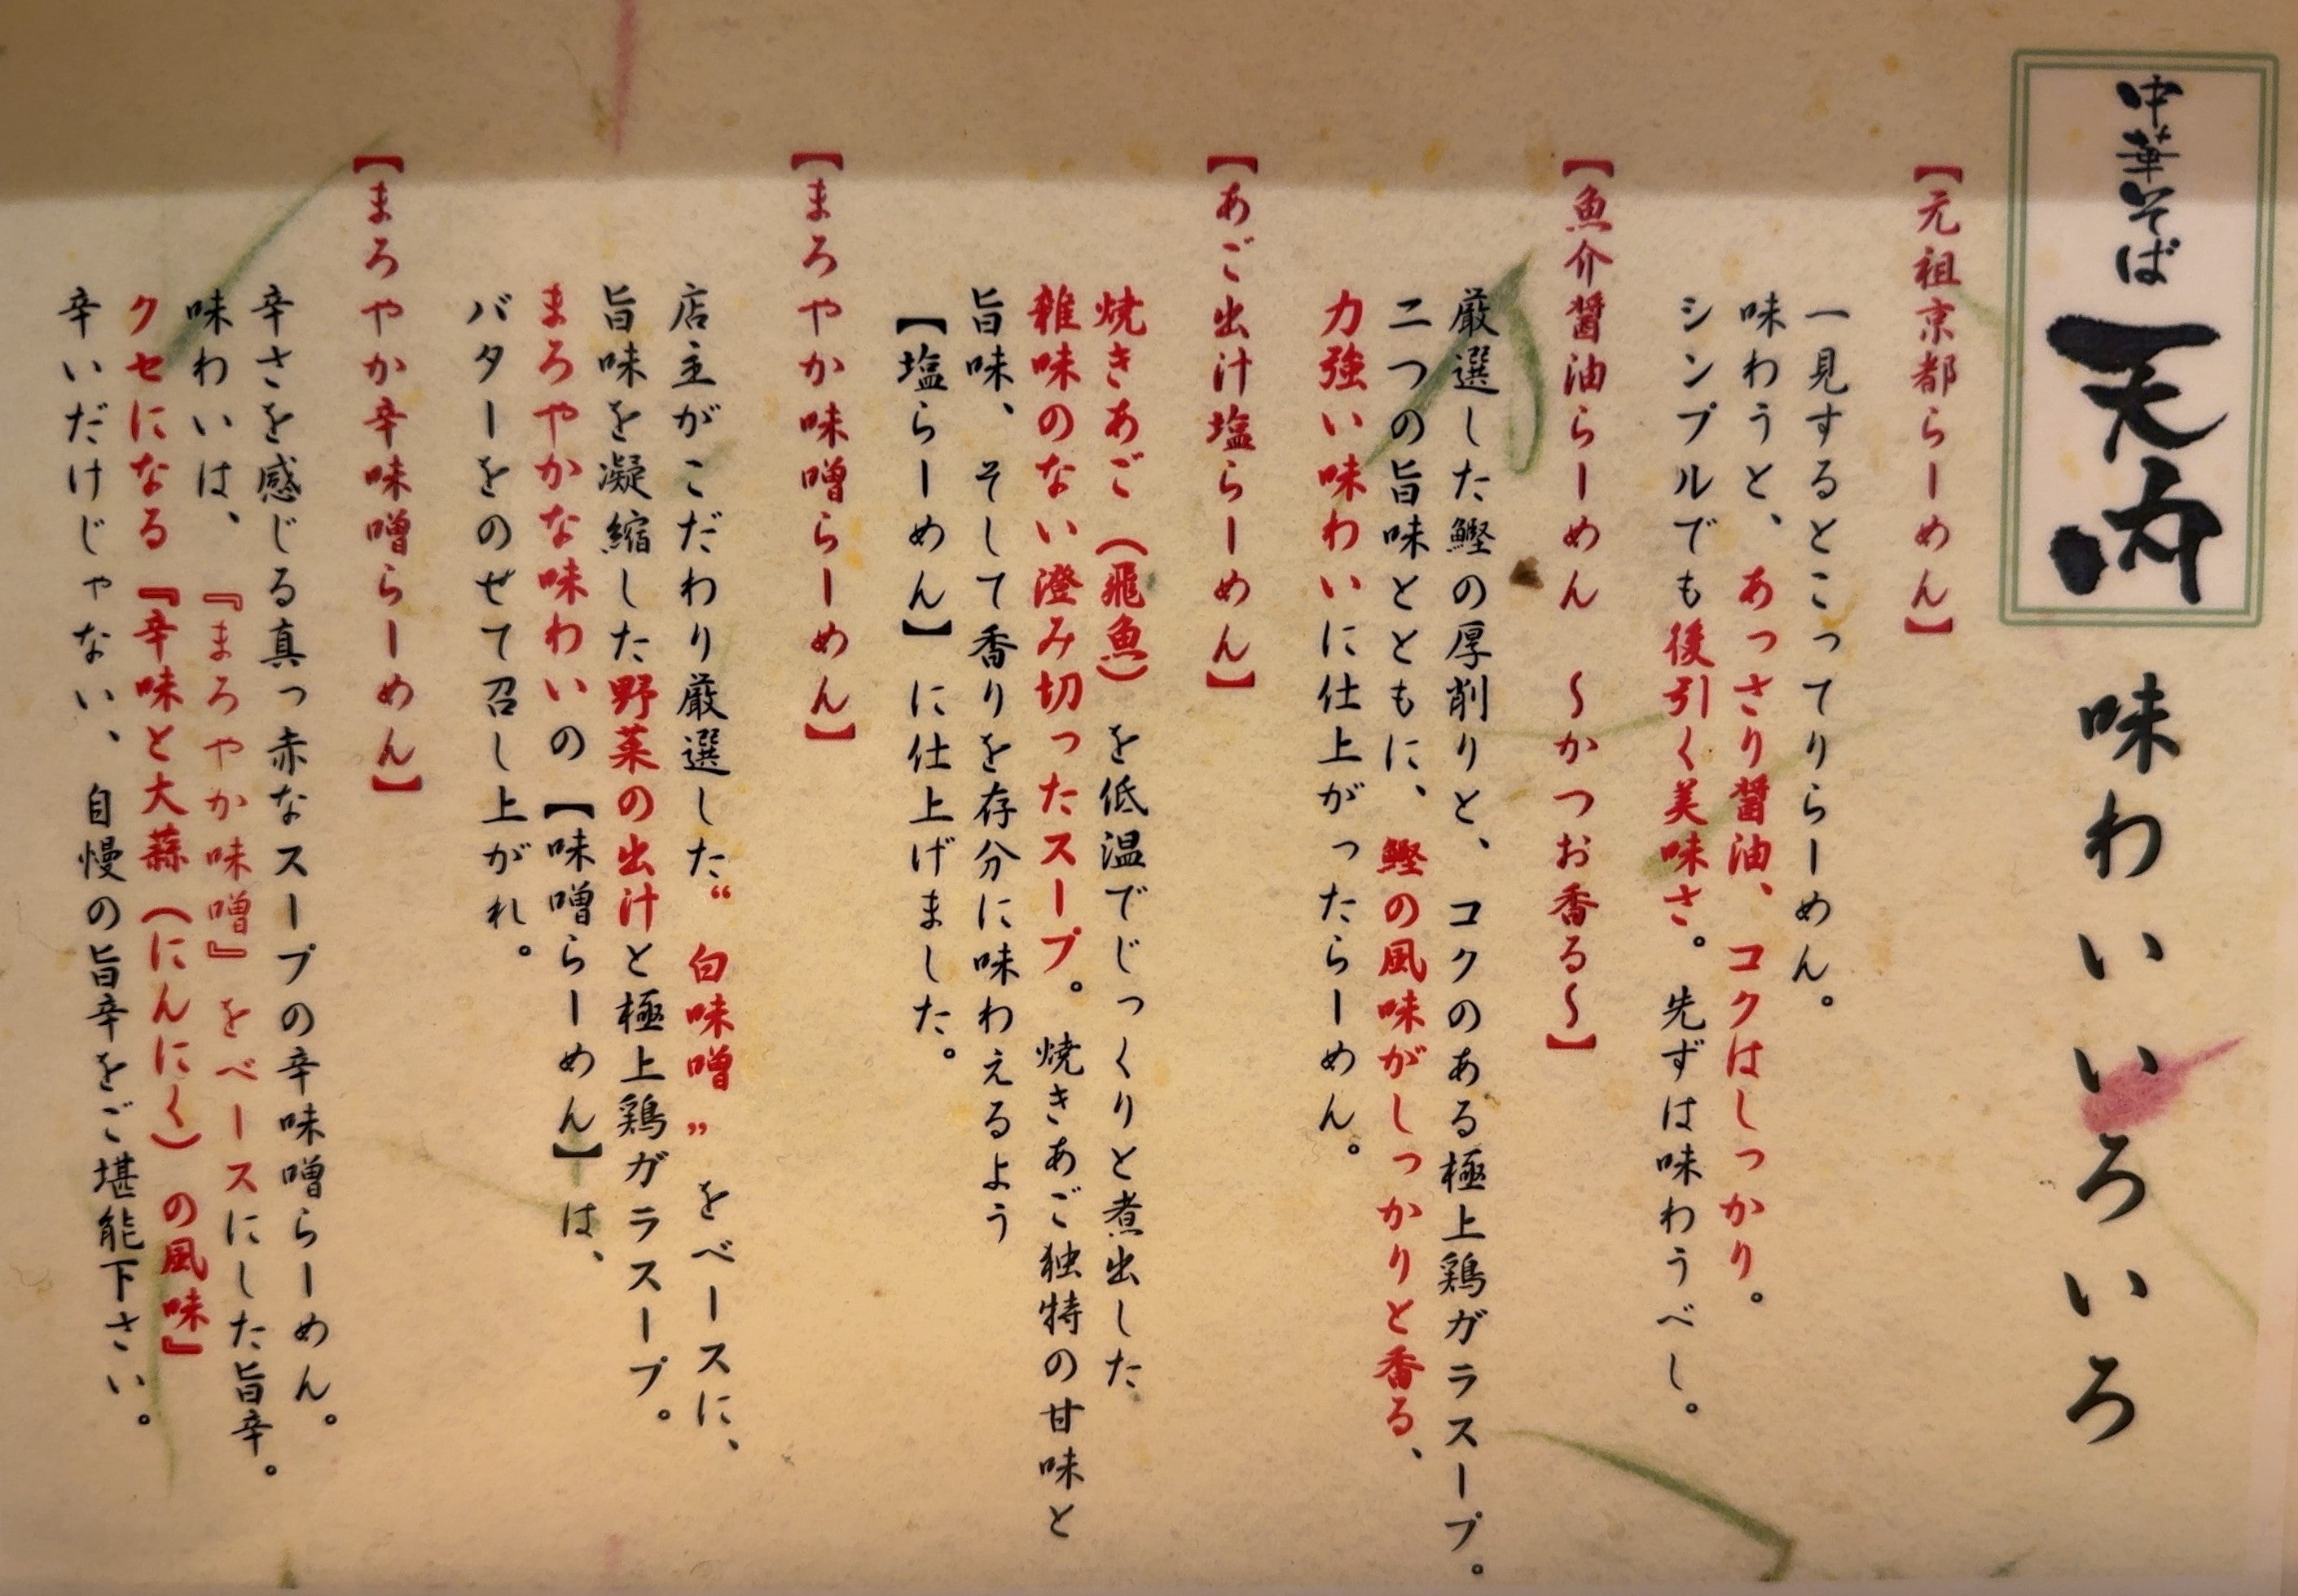 中華そば 天内 味わいいろいろ
【元祖京都らーめん】
一見するとこってりらーめん。
味わうと、あっさり醤油、コクはしっかり。
シンプルでも後引く美味さ。先ずは味わうべし。
【魚介醤油らーめん ～かつお香る～】
厳選した鰹の厚削りと、コクのある極上鶏ガラスープ。
二つの旨味とともに、鰹の風味がしっかりと香る、
力強い味わいに仕上がったらーめん。
【あご出汁塩らーめん】
焼きあご（飛魚）を低温でじっくりと煮出した
雑味のない澄み切ったスープ。焼きあご独特の甘味と
旨味、そして香りを存分に味わえるよう
【塩らーめん】に仕上げました。
【まろやか味噌らーめん】
店主がこだわり厳選した“白味噌”をベースに、
旨味を凝縮した野菜の出汁と極上鶏ガラスープ。
まろやかな味わいの【味噌らーめん】は、
バターをのせて召し上がれ。
【まろやか辛味噌らーめん】
辛さを感じる真っ赤なスープの辛味噌らーめん。
味わいは、『まろやか味噌』をベースにした旨辛。
クセになる『辛味と大蒜（にんにく）の風味』
辛いだけじゃない、自慢の旨辛をご堪能下さい。